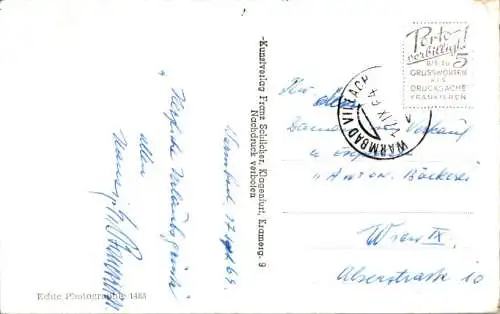 Warmbad, 17 Sept 64.
" Herzliche Urlaubsgrüße "
allen
Echte Photographie 1483
-Kunstverlag Franz Schilcher, Klagenfurt, Kramerg. 9
Nachdruck verboten
Porto
verbilligt!
BIS ZU 5
GRUSSWORTEN
ALS
DRUCKSACHE
FRANKIEREN
WARMBAD VILLACH
17.IX.64
An alle
Damen Verkauf
u.
"Anton Bäckerei
Wien IX.
Alserstraße 10